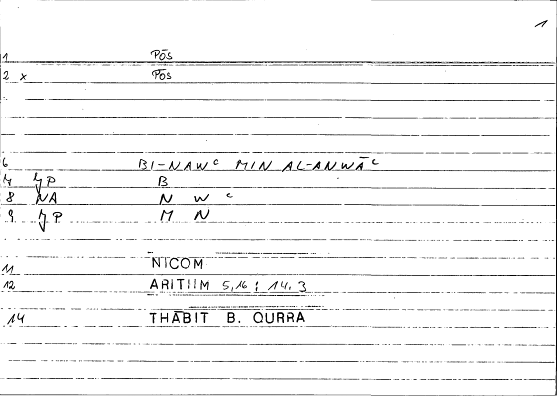 1
1 PŌS
2 x PŌS
6 BI-NAWᶜ MIN AL-ANWĀᶜ
7 P B
8 NA N W ᶜ
9 P M N
11 NICOM
12 ARITIIM 5,16 : 14.3
14 THĀBIT B. QURRA